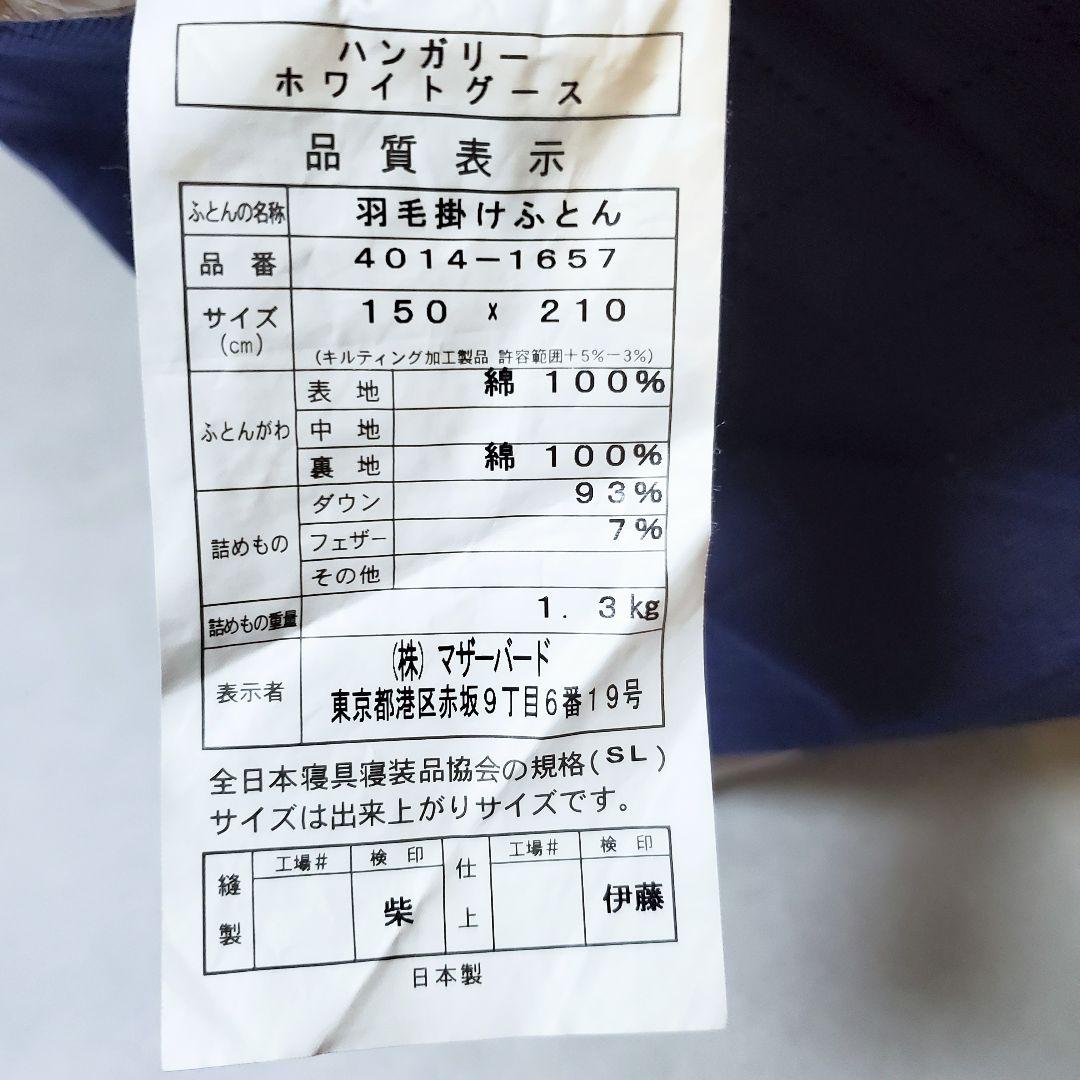 ハンガリー
ホワイトグース
品質表示
ふとんの名称 羽毛掛けふとん
品番 4014-1657
サイズ(cm) 150 x 210
(キルティング加工製品 許容範囲+5%-3%)
ふとんがわ 表地 綿 100%
中地
裏地 綿 100%
詰めもの ダウン 93%
フェザー 7%
その他
詰めもの重量 1.3kg
表示者 (株)マザーバード
東京都港区赤坂9丁目6番19号
全日本寝具寝装品協会の規格(SL)
サイズは出来上がりサイズです。
縫製 工場# 検印 仕上 工場# 検印
柴 伊藤
日本製